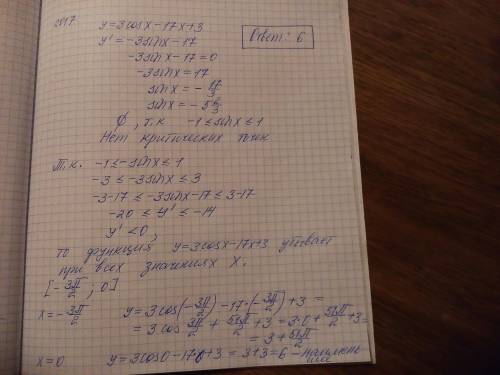 2017 y=3cosx-17x+3
Ответ: 6
y'=-3sinx-17
-3sinx-17=0
-3sinx=17
sinx=-17/3
sinx=-5 2/3
∅, т.к. -1≤sinx≤1
Нет критических точек
Т.к. -1≤-sinx≤1
-3≤-3sinx≤3
-3-17≤-3sinx-17≤3-17
-20≤y'≤-14
y'<0,
то функция y=3cosx-17x+3 убывает
при всех значениях x.
[-3π/2; 0]
x=-3π/2 y=3cos(-3π/2)-17·(-3π/2)+3=
=3cos 3π/2+51π/2+3=3·0+51π/2+3=
=3+51π/2
x=0 y=3cos0-17·0+3=3+3=6-наименьшее